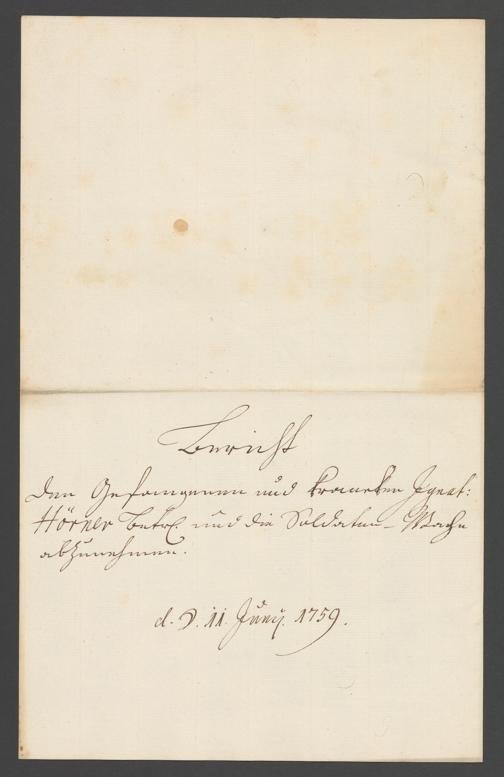 Bericht
den Gefangenen und krancken Ignat:
Hörner betrl. und die Soldaten-Wache
abzunehmen.
d. D. 11. Junÿ. 1759.